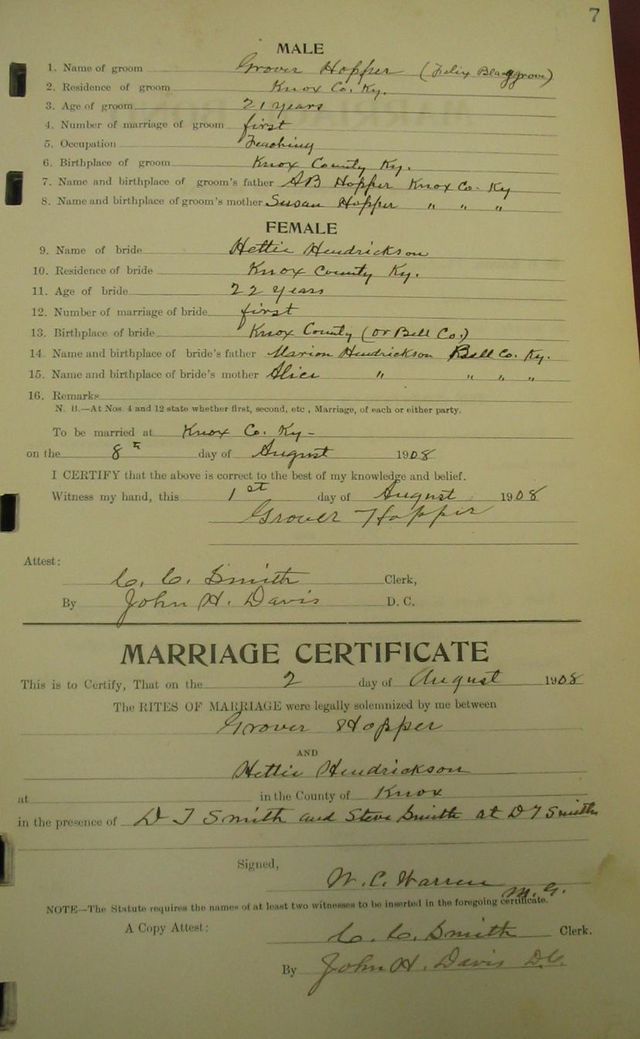 7
MALE
1. Name of groom Grover Hopper (Felix Blaggrove)
2. Residence of groom Knox Co. Ky.
3. Age of groom 21 years
4. Number of marriage of groom first
5. Occupation Teaching
6. Birthplace of groom Knox County Ky.
7. Name and birthplace of groom's father AB Hopper Knox Co. Ky
8. Name and birthplace of groom's mother Susan Hopper " " "
FEMALE
9. Name of bride Hettie Hendrickson
10. Residence of bride Knox County Ky.
11. Age of bride 22 years
12. Number of marriage of bride first
13. Birthplace of bride Knox County (or Bell Co.)
14. Name and birthplace of bride's father Marion Hendrickson Bell Co. Ky.
15. Name and birthplace of bride's mother Alice " " " "
16. Remarks
N. B.—At Nos. 4 and 12 state whether first, second, etc , Marriage, of each or either party.
To be married at Knox Co. Ky-
on the 8th day of August 1908
I CERTIFY that the above is correct to the best of my knowledge and belief.
Witness my hand, this 1st day of August 1908
Grover Hopper
Attest:
C. C. Smith Clerk,
By John H. Davis D. C.
MARRIAGE CERTIFICATE
This is to Certify, That on the 2 day of August 1908
The RITES OF MARRIAGE were legally solemnized by me between
Grover Hopper
AND
Hettie Hendrickson
at in the County of Knox
in the presence of D T Smith and Steve Smith at D T Smiths
Signed,
W. C. Warren M. G.
NOTE—The Statute requires the names of at least two witnesses to be inserted in the foregoing certificate.
A Copy Attest:
C. C. Smith Clerk.
By John H. Davis D.C.